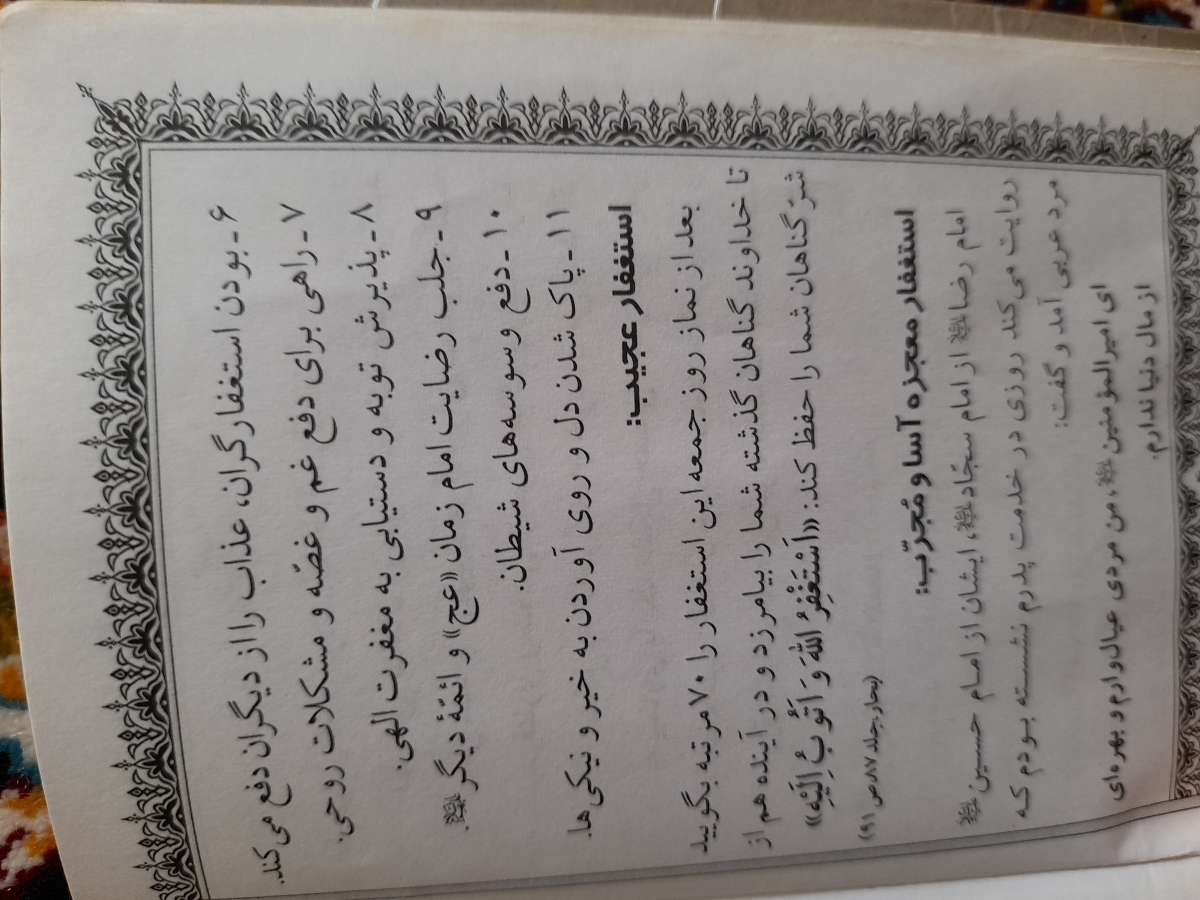 ۶ـ بودن استغفارگران، عذاب را از دیگران دفع می‌کند.
۷ـ راهی برای دفع غم و غصّه و مشکلات روحی.
۸ـ پذیرش توبه و دستیابی به مغفرت الهی.
۹ـ جلب رضایت امام زمان «عج» و ائمّهٔ دیگر
۱۰ـ دفع وسوسه‌های شیطان.
۱۱ـ پاک شدن دل و روی آوردن به خیر و نیکی‌ها.
استغفار عجیب:
بعد از نماز روز جمعه این استغفار را ۷۰ مرتبه بگویید
تا خداوند گناهان گذشته شما را بیامرزد و در آینده هم از
شرّ گناهان شما را حفظ کند: «اَسْتَغْفِرُ اللهَ وَ اَتُوبُ اِلَیْهِ»
(بحار، جلد ۸۷، ص ۹۱)
استغفار معجزه آسا و مُجرّب:
امام رضا از امام سجّاد، ایشان از امام حسین
روایت می‌کند روزی در خدمت پدرم نشسته بودم که
مرد عربی آمد و گفت:
ای امیرالمؤمنین، من مردی عیال‌وارم و بهره‌ای
از مال دنیا ندارم.